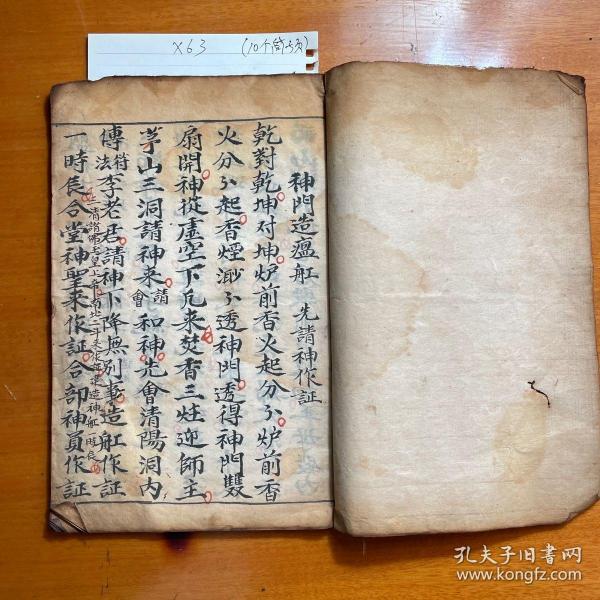 X63 (10个筒子页)
神門造瘟舡 先請神作証
乾對乾坤对坤炉前香火起分分炉前香
火分分起香煙渺分透神門透得神門雙
扇開神從虛空下凢来焚香三炷迎師主
茅山三洞請神来請會和神先會清陽洞内
傳符法李老君請神卜降無別事造舡作証
一時良合堂神聖来作証合部神員作証
孔夫子旧书网
www.kongfz.com